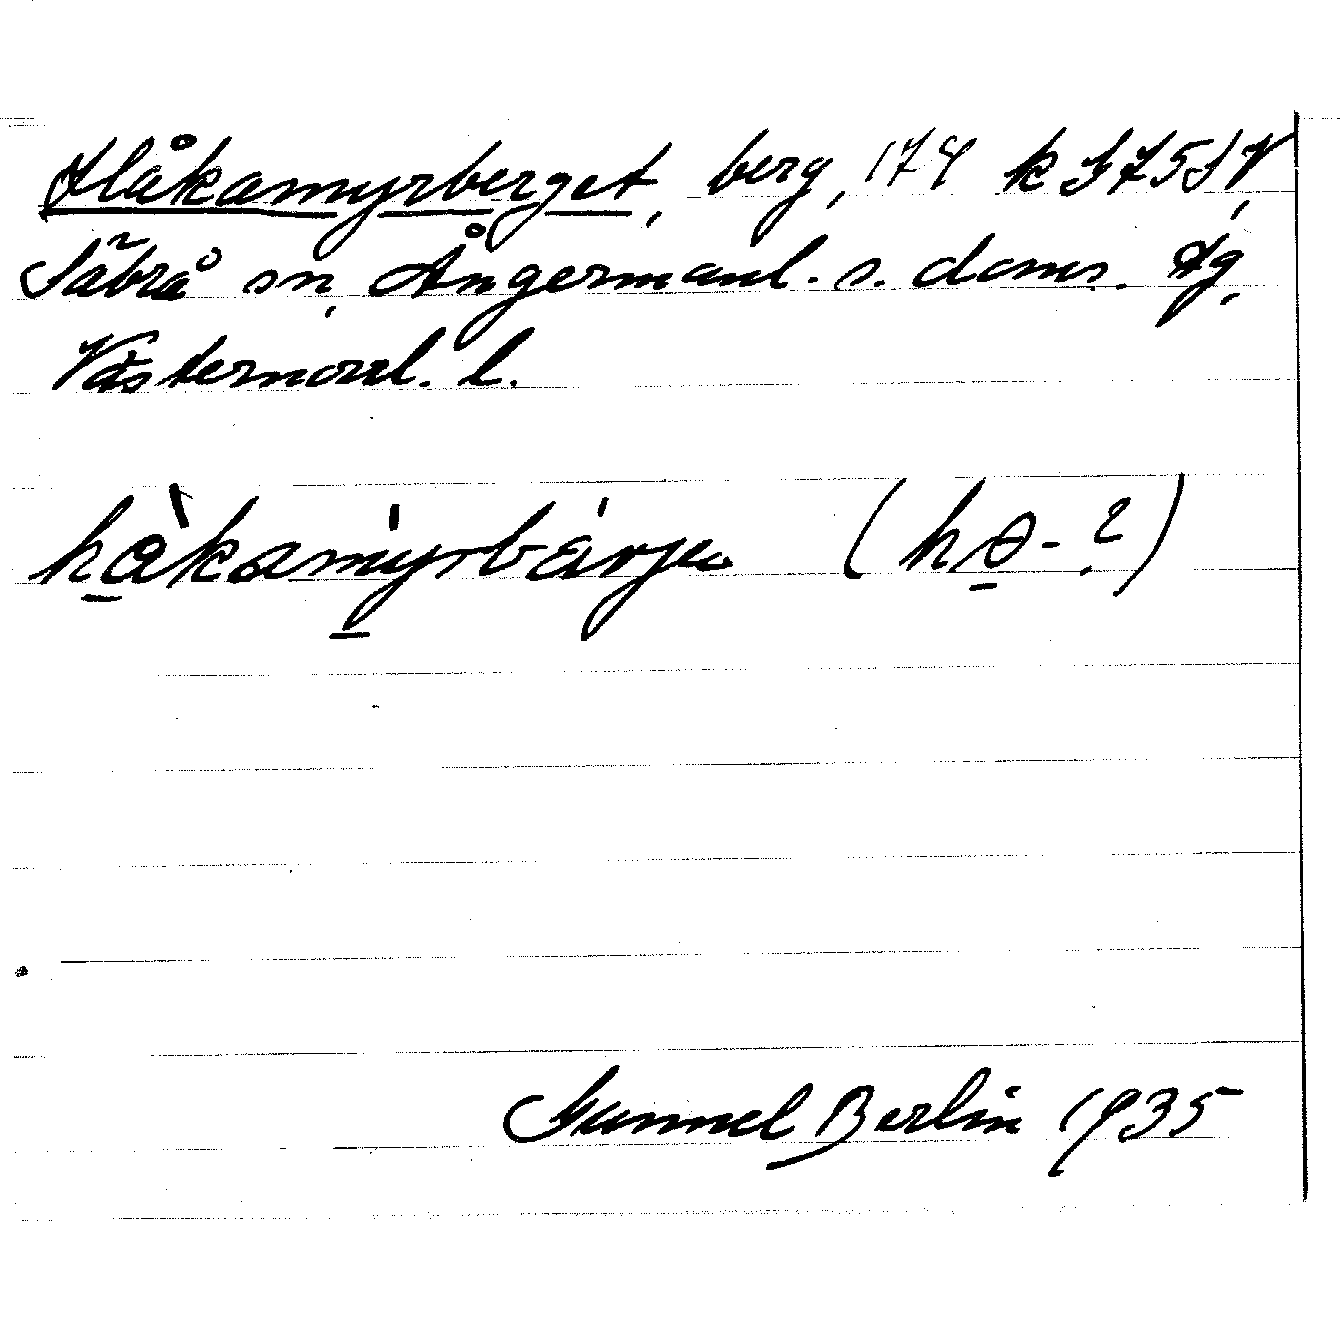 Håkamyrberget, berg, 174 k 375 SV
Säbrå sn, Ångermanl. s. doms. tg,
Västernorrl. l.
hàkamyrbärje (hɵ-?)
Gunnel Berlin 1935